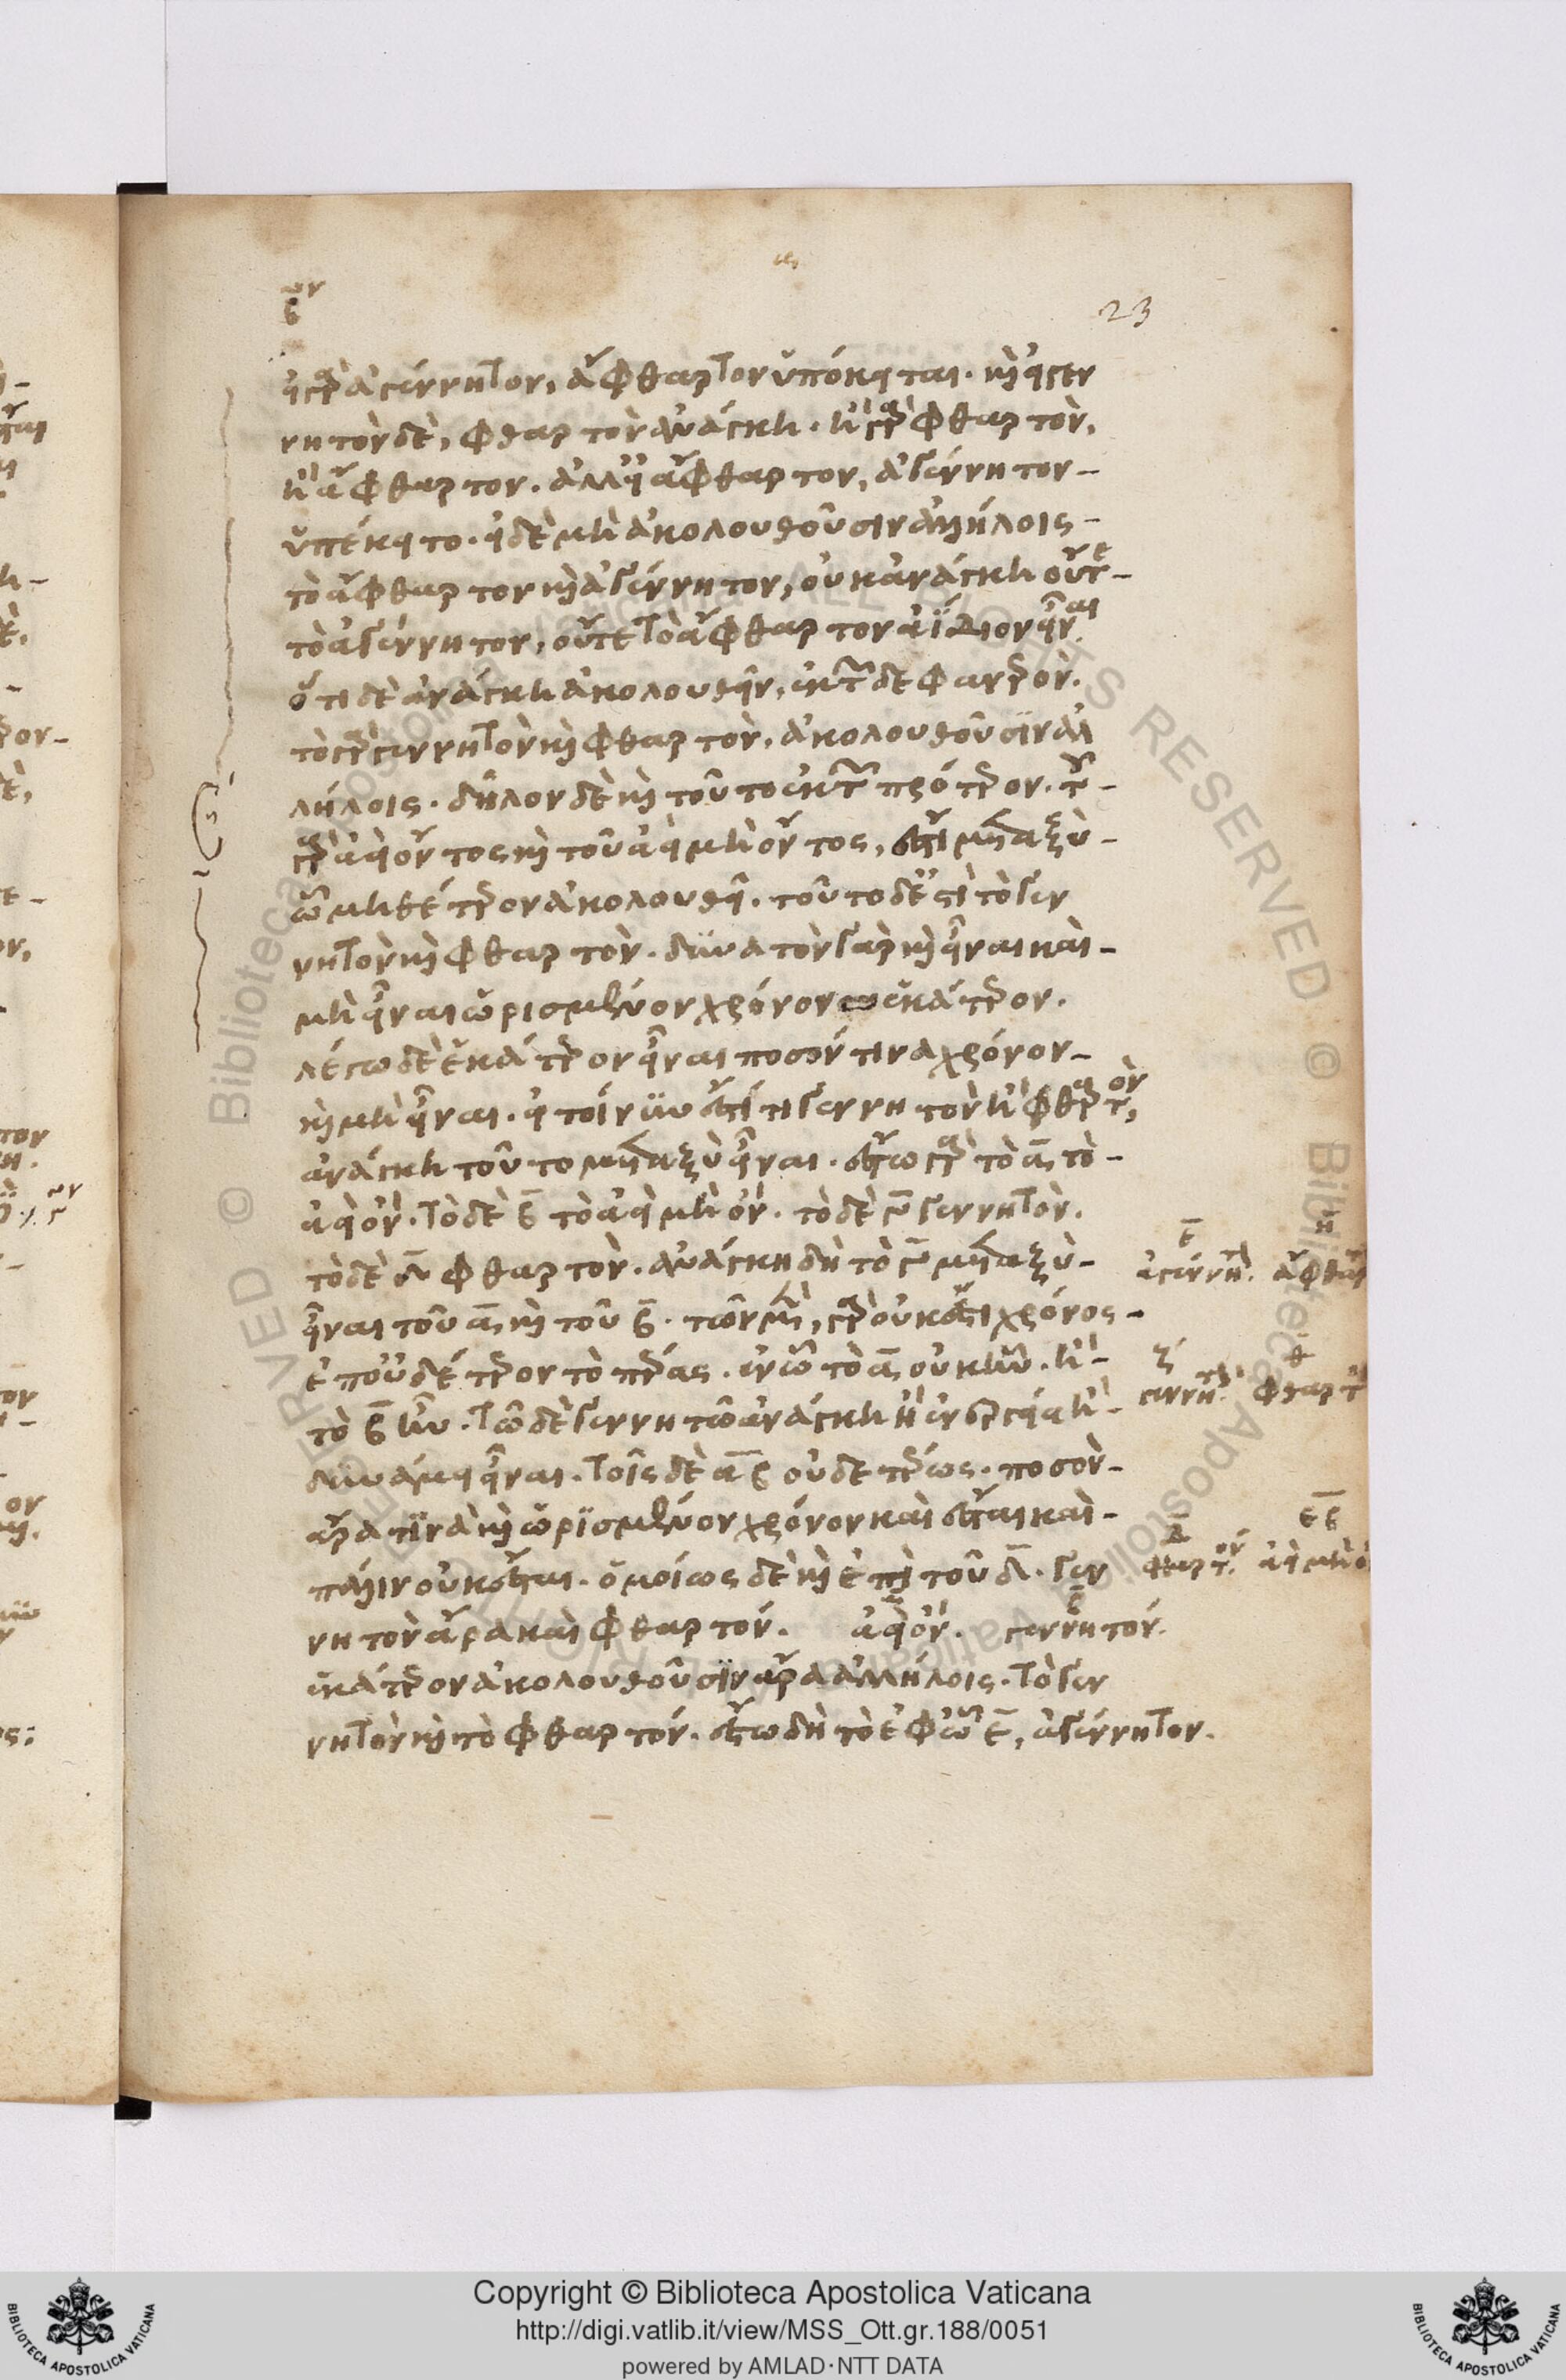 23
εἰ γὰρ ἀγέννητον, ἄφθαρτον ὑπόκειται. καὶ εἰ γεν
νητὸν δὲ, φθαρτὸν ἀνάγκη. ἢ γὰρ φθαρτὸν,
ἢ ἄφθαρτον. ἀλλ' εἰ ἄφθαρτον, ἀγέννητον-
ὑπέκειτο. εἰ δὲ μὴ ἀκολουθοῦσιν ἀλλήλοις-
τὸ ἄφθαρτον καὶ ἀγέννητον, οὐκ ἀνάγκη οὔτε-
τὸ ἀγέννητον, οὔτε τὸ ἄφθαρτον ἀΐδιον εἶναι.
ὅτι δὲ ἀνάγκη ἀκολουθεῖν, ἐκ τῶνδε φανερόν.
τὸ γὰρ γεννητὸν καὶ φθαρτὸν, ἀκολουθοῦσιν ἀλ
λήλοις. δῆλον δὲ καὶ τοῦτο ἐκ τῶν πρότερον. τοῦ-
γὰρ ἀεὶ ὄντος καὶ τοῦ ἀεὶ μὴ ὄντος, ἔστι μεταξὺ-
ᾧ μηδέτερον ἀκολουθεῖ. τοῦτο δ' ἐστὶ τὸ γεν
νητὸν καὶ φθαρτὸν. δυνατὸν γὰρ καὶ εἶναι καὶ-
μὴ εἶναι ὡρισμένον χρόνον ἑκάτερον.
λέγω δὲ ἑκάτερον εἶναι ποσόν τινα χρόνον-
καὶ μὴ εἶναι. εἰ τοίνυν ἐστί τι γεννητὸν ἢ φθαρτόν,
ἀνάγκη τοῦτο μεταξὺ εἶναι. ἔστω γὰρ τὸ α, τὸ-
ἀεὶ ὄν. τὸ δὲ β τὸ ἀεὶ μὴ ὄν. τὸ δὲ γ γεννητὸν.
τὸ δὲ δ φθαρτὸν. ἀνάγκη δὴ τὸ γ μεταξὺ-
εἶναι τοῦ α, καὶ τοῦ β. τῶν μὲν, γὰρ οὐκ ἔστι χρόνος-
ἐπ' οὐδέτερον τὸ πέρας. ἐν ᾧ τὸ α, οὐκ ἦν. ἢ-
τὸ β ἦν. τῷ δὲ γεννητῷ ἀνάγκη ἢ ἐνεργείᾳ ἢ-
δυνάμει εἶναι. τοῖς δὲ α β οὐδετέρως. ποσὸν-
ἄρα τινὰ καὶ ὡρισμένον χρόνον καὶ ἔσται καὶ-
πάλιν οὐκ ἔσται. ὁμοίως δὲ καὶ ἐπὶ τοῦ δ. γεν
νητὸν ἄρα καὶ φθαρτόν. ἀεὶ ὄν. γεννητόν.
ἑκάτερον ἀκολουθοῦσιν ἄρα ἀλλήλοις. τὸ γεν
νητὸν καὶ τὸ φθαρτόν. ἔστω δὴ τὸ ἐφ' ᾧ ε, ἀγέννητον.
ε η
ἀγέννητον. ἄφθαρ
ζ
γεννητόν. φθαρτ
δ β
φθαρτόν. ἀεὶ μὴ ὄ
Copyright © Biblioteca Apostolica Vaticana
http://digi.vatlib.it/view/MSS_Ott.gr.188/0051
powered by AMLAD·NTT DATA